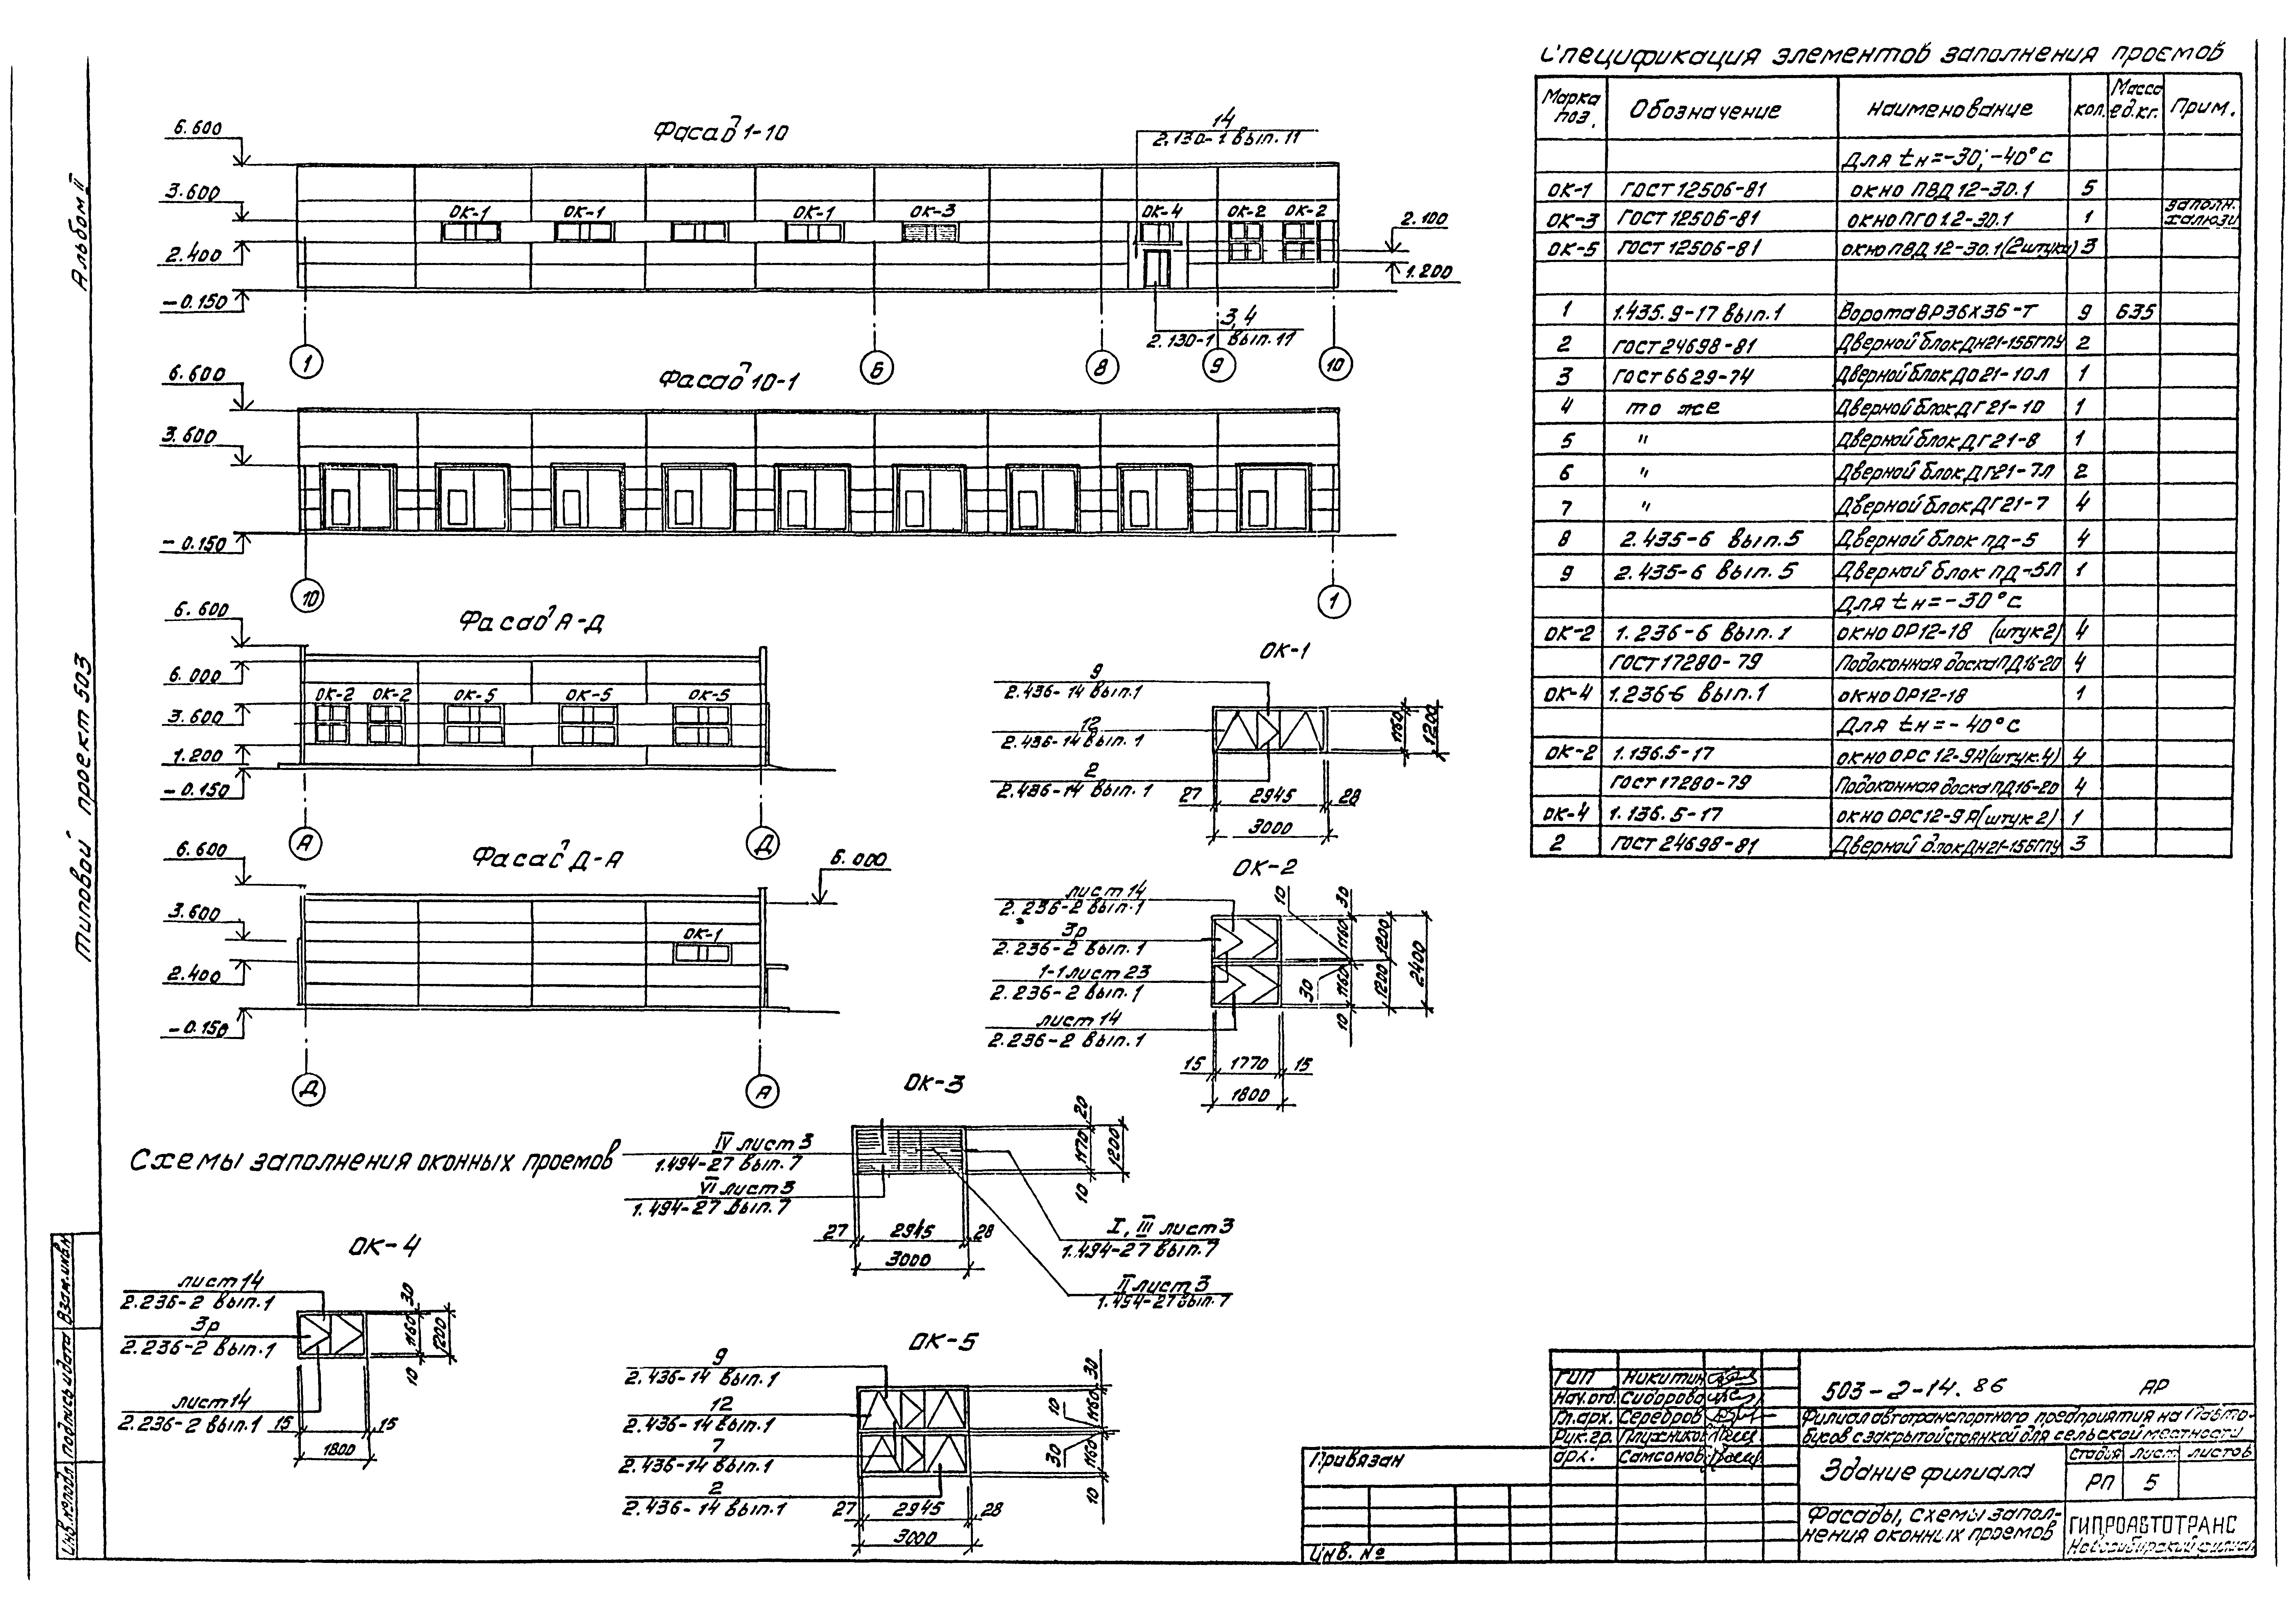 Альбом II
Типовой проект 503
Фасад 1-10
6.600
3.600
2.400
-0.150
ОК-1
ОК-1
ОК-1
ОК-3
ОК-4
ОК-2
ОК-2
14
2.130-1 вып.11
3,4
2.130-1 вып.11
2.100
1.200
1
6
8
9
10
Фасад 10-1
6.600
3.600
-0.150
10
1
Фасад А-Д
6.600
6.000
3.600
1.200
-0.150
ОК-2
ОК-2
ОК-5
ОК-5
ОК-5
А
Д
Фасад Д-А
6.600
3.600
2.400
-0.150
6.000
ОК-1
Д
А
ОК-1
9
2.436-14 вып.1
12
2.436-14 вып.1
2
2.436-14 вып.1
27 2945 28
3000
1160
1200
ОК-2
лист 14
2.236-2 вып.1
3р
2.236-2 вып.1
1-1 лист 23
2.236-2 вып.1
лист 14
2.236-2 вып.1
15 1770 15
1800
10
30
1160
1200
2400
30
1160
1200
10
Схемы заполнения оконных проемов
ОК-3
IV лист 3
1.494-27 вып.7
VI лист 3
1.494-27 вып.7
I, III лист 3
1.494-27 вып.7
II лист 3
1.494-27 вып.7
27 2945 28
3000
20
1170
1200
10
ОК-4
лист 14
2.236-2 вып.1
3р
2.236-2 вып.1
лист 14
2.236-2 вып.1
15 15
1800
30
1160
1200
10
ОК-5
9
2.436-14 вып.1
12
2.436-14 вып.1
7
2.436-14 вып.1
2
2.436-14 вып.1
27 2945 28
3000
30
10
1160
30
1160
10
Спецификация элементов заполнения проемов
Марка поз. Обозначение Наименование Кол. Масса ед.кг. Прим.
Для tн=-30°, -40°С
ОК-1 ГОСТ 12506-81 окно ПВД 12-30.1 5
ОК-3 ГОСТ 12506-81 окно ПГО 12-30.1 1 заполн. жалюзи
ОК-5 ГОСТ 12506-81 окно ПВД 12-30.1 (2 штуки) 3
1 1.435.9-17 вып.1 Ворота ВР36Х36-Т 9 635
2 ГОСТ 24698-81 Дверной блок ДН21-15БГПУ 2
3 ГОСТ 6629-74 Дверной блок ДО21-10Л 1
4 то же Дверной блок ДГ21-10 1
5 " Дверной блок ДГ21-8 1
6 " Дверной блок ДГ21-7Л 2
7 " Дверной блок ДГ21-7 4
8 2.435-6 вып.5 Дверной блок ПД-5 4
9 2.435-6 вып.5 Дверной блок ПД-5Л 1
Для tн=-30°С
ОК-2 1.236-6 вып.1 окно ОР12-18 (штук 2) 4
ГОСТ 17280-79 Подоконная доска ПД16-20 4
ОК-4 1.236-6 вып.1 окно ОР12-18 1
Для tн=-40°С
ОК-2 1.136.5-17 окно ОРС 12-9А (штук.4) 4
ГОСТ 17280-79 Подоконная доска ПД16-20 4
ОК-4 1.136.5-17 окно ОРС12-9А (штук 2) 1
2 ГОСТ 24698-81 Дверной блок ДН21-15БГПУ 3
ГИП Никитин
Нач.отд. Сидорова
Гл.арх. Серебров
Рук.гр. Плужников
Арх. Самсонов
503-2-14.86 АР
Филиал автотранспортного предприятия на автобусов с закрытой стоянкой для сельской местности
Здание филиала
Стадия Лист Листов
РП 5
Фасады, Схемы заполнения оконных проемов
ГИПРОАВТОТРАНС
Новосибирский филиал
Привязан
Инв. №
Инв.№ подл. Подпись и дата Взам.инв.№